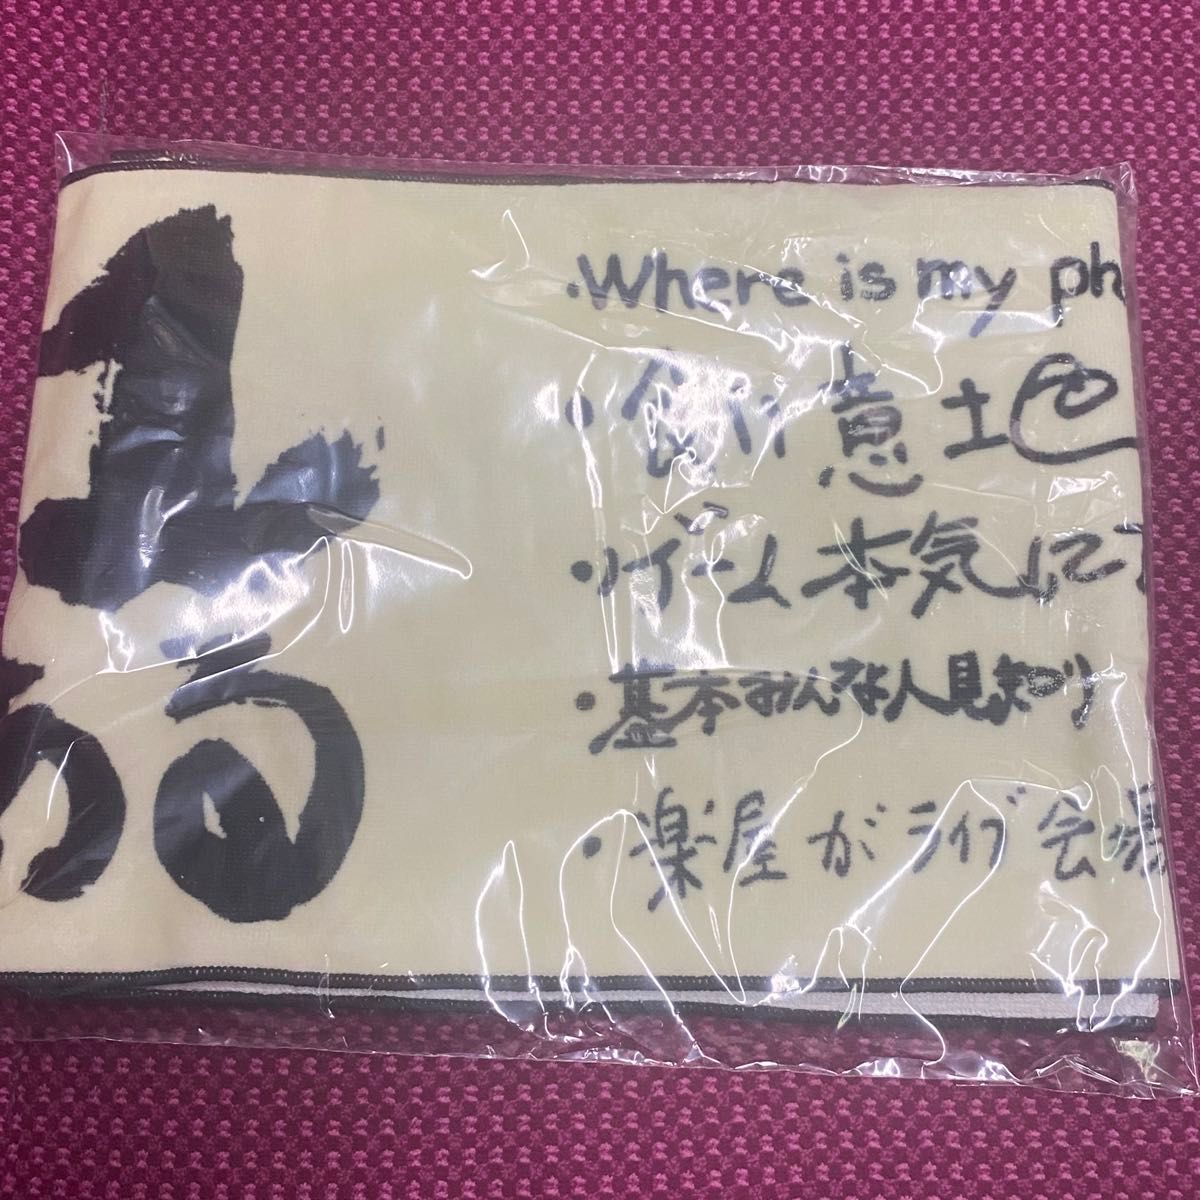 る
・Where is my
・食い意地
・ゲーム本気に
・基本みんな人見知り
・楽屋がライブ会場